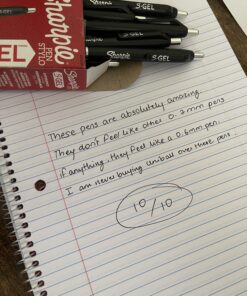 Sharpie
S·GEL
Sharpie
S·GEL
S·GEL
Sharpie
PEN
STYLO
GEL
These pens are absolutely amazing.
They dont feel like other 0.7mm pens
if anything, they feel like a 0.5mm pen.
I am never buying uniball over these pens.
10/10